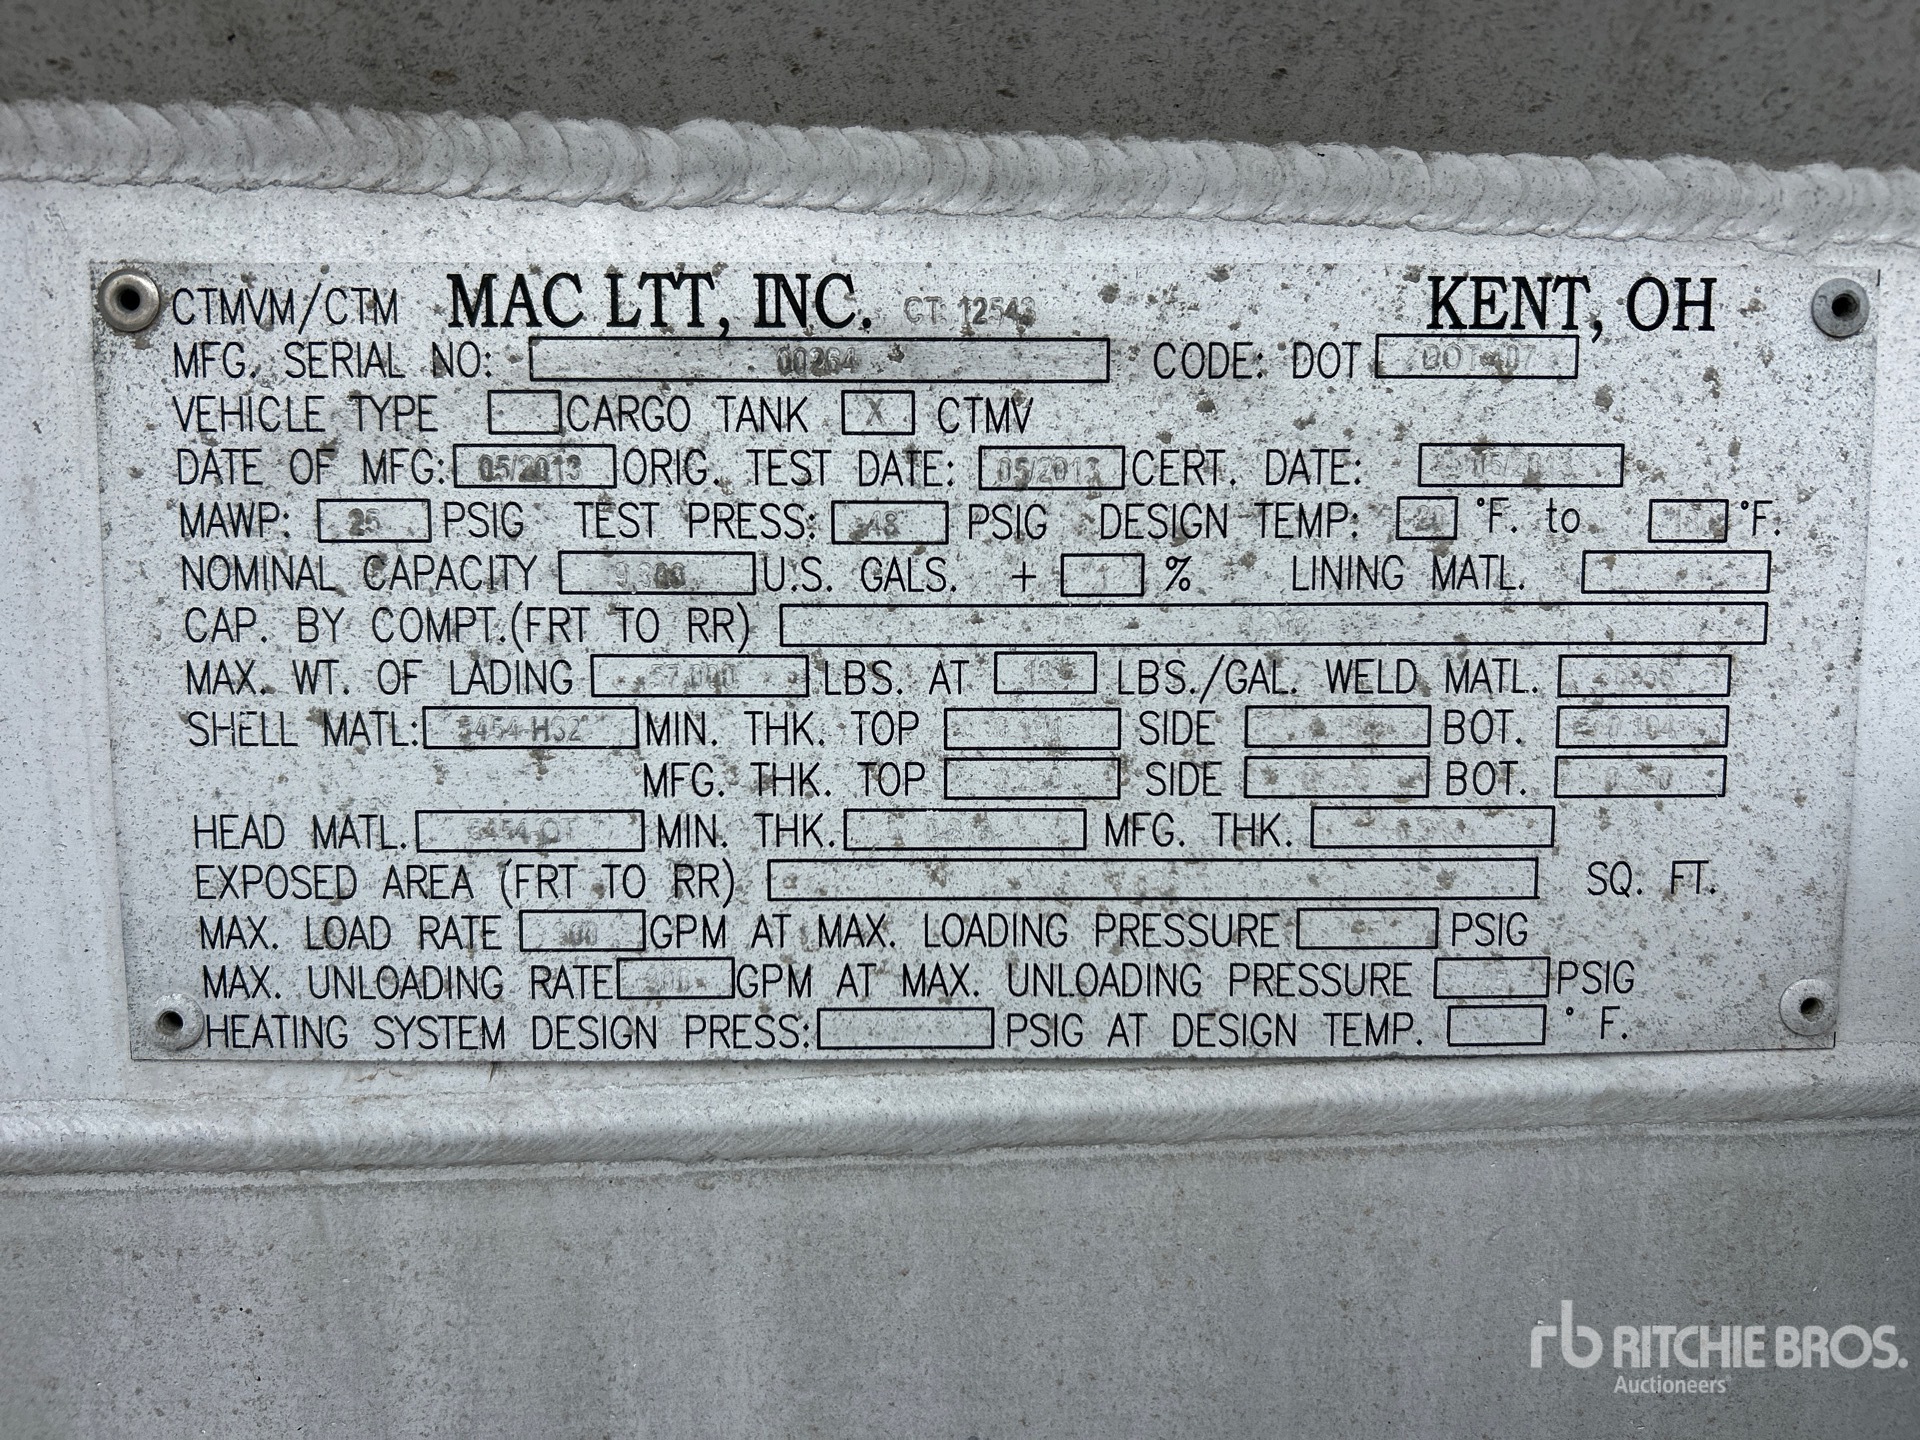 CTMVM/CTM MAC LTT, INC. CT 12543 KENT, OH
MFG. SERIAL NO: 00264 CODE: DOT DOT 407
VEHICLE TYPE CARGO TANK X CTMV
DATE OF MFG: 05/2013 ORIG. TEST DATE: 05/2013 CERT. DATE:
MAWP: 25 PSIG TEST PRESS: 48 PSIG DESIGN TEMP: -20 °F. to °F.
NOMINAL CAPACITY 9,300 U.S. GALS. + 1 % LINING MATL.
CAP. BY COMPT.(FRT TO RR)
MAX. WT. OF LADING 57,000 LBS. AT LBS./GAL. WELD MATL.
SHELL MATL: 5454-H32 MIN. THK. TOP SIDE BOT.
MFG. THK. TOP SIDE BOT.
HEAD MATL. 5454-OT MIN. THK. MFG. THK.
EXPOSED AREA (FRT TO RR) SQ. FT.
MAX. LOAD RATE GPM AT MAX. LOADING PRESSURE PSIG
MAX. UNLOADING RATE GPM AT MAX. UNLOADING PRESSURE PSIG
HEATING SYSTEM DESIGN PRESS: PSIG AT DESIGN TEMP. ° F.
rb RITCHIE BROS.
Auctioneers